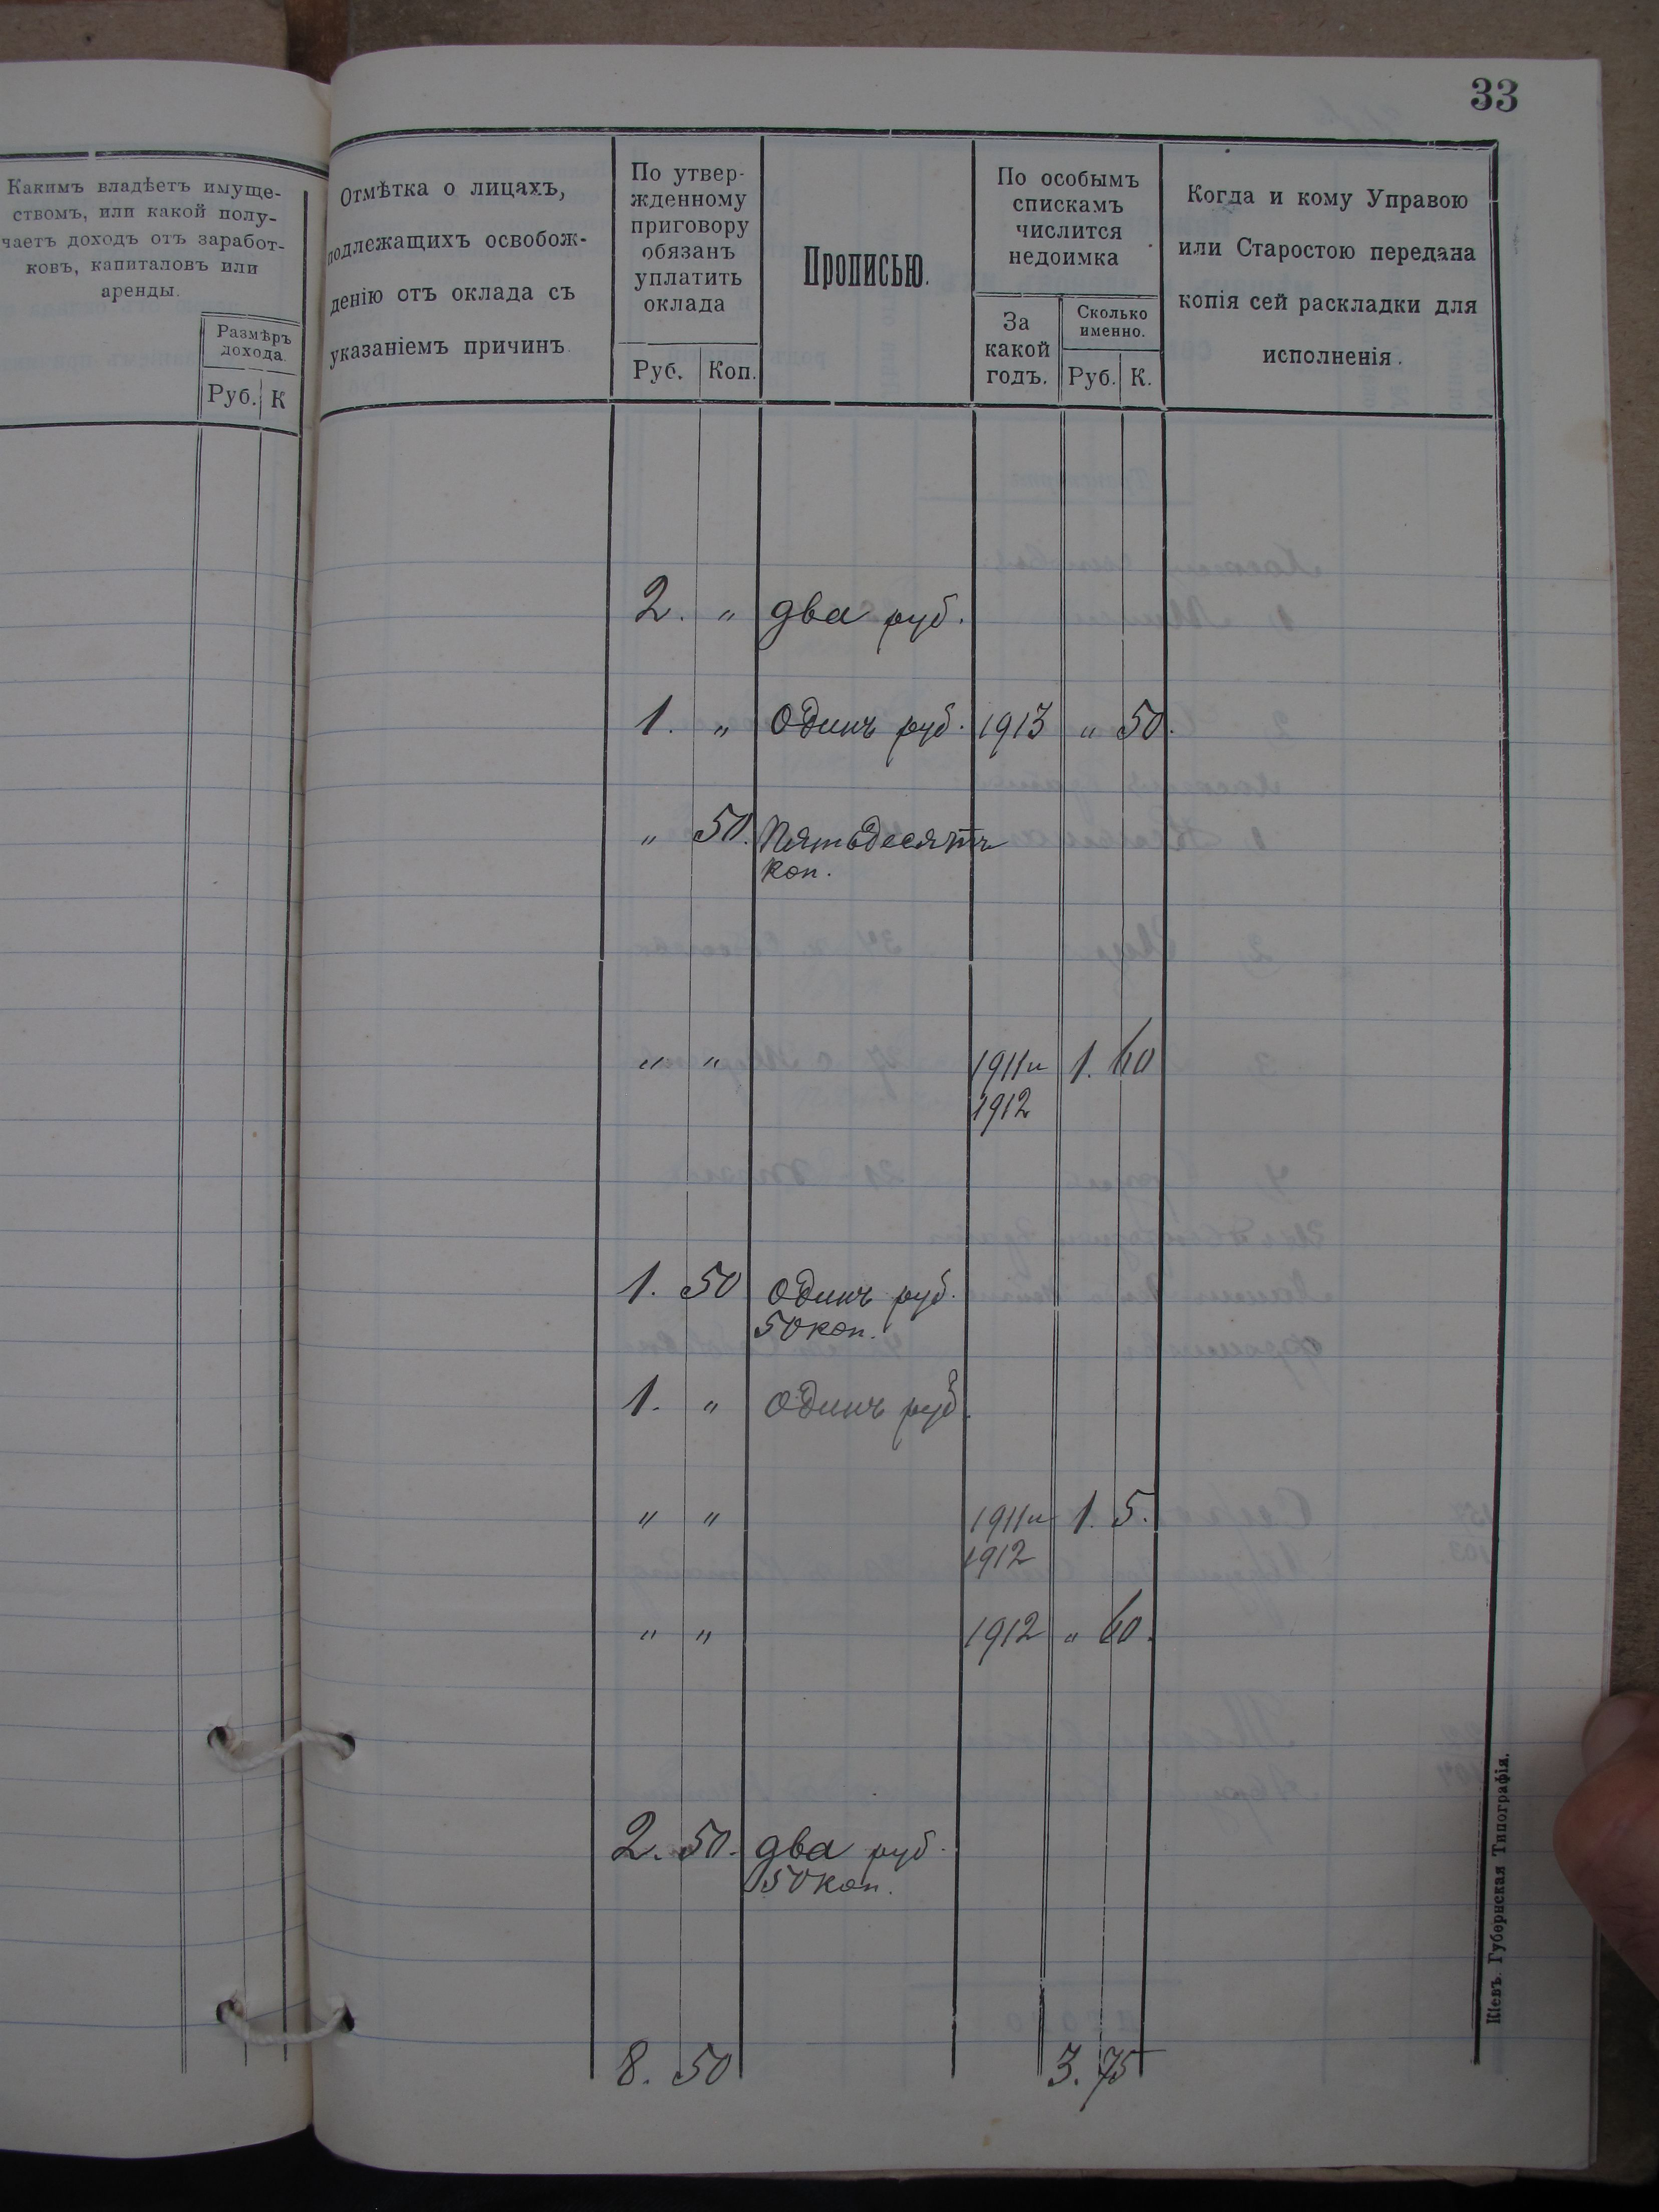 33
Какимъ владѣетъ имуще-
ствомъ, или какой полу-
чаетъ доходъ отъ заработ-
ковъ, капиталовъ или
аренды.
Размѣръ
дохода.
Руб. К
Отмѣтка о лицахъ,
подлежащихъ освобож-
денію отъ оклада съ
указаніемъ причинъ.
По утвер-
жденному
приговору
обязанъ
уплатить
оклада
Руб. Коп.
Прописью.
По особымъ
спискамъ
числится
недоимка
За
какой
годъ.
Сколько
именно.
Руб. К.
Когда и кому Управою
или Старостою передана
копія сей раскладки для
исполненія.
2. " два руб.
1. " Одинъ руб. 1913 " 50.
" 50. Пятьдесятъ
коп.
" " 1911 и 1. 60
1912
1. 50 Одинъ руб.
50 коп.
1. " Одинъ руб.
" " 1911 и 1. 5.
1912
" " 1912 " 60.
2. 50. два руб.
50 коп.
8. 50 3. 75
Кіевъ. Губернская Типографія.